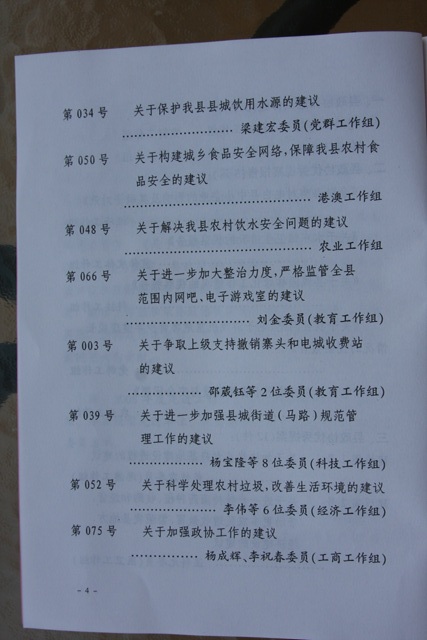 第 034 号 关于保护我县县城饮用水源的建议
…………………… 梁建宏委员(党群工作组)
第 050 号 关于构建城乡食品安全网络,保障我县农村食
品安全的建议
………………………………… 港澳工作组
第 048 号 关于解决我县农村饮水安全问题的建议
………………………………… 农业工作组
第 066 号 关于进一步加大整治力度,严格监管全县
范围内网吧、电子游戏室的建议
……………………… 刘金委员(教育工作组)
第 003 号 关于争取上级支持撤销寨头和电城收费站
的建议
……………… 邵葳钰等 2 位委员(教育工作组)
第 039 号 关于进一步加强县城街道(马路)规范管
理工作的建议
……………… 杨宝隆等 8 位委员(科技工作组)
第 052 号 关于科学处理农村垃圾,改善生活环境的建议
………………… 李伟等 6 位委员(经济工作组)
第 075 号 关于加强政协工作的建议
…………… 杨成辉、李祝春委员(工商工作组)
- 4 -